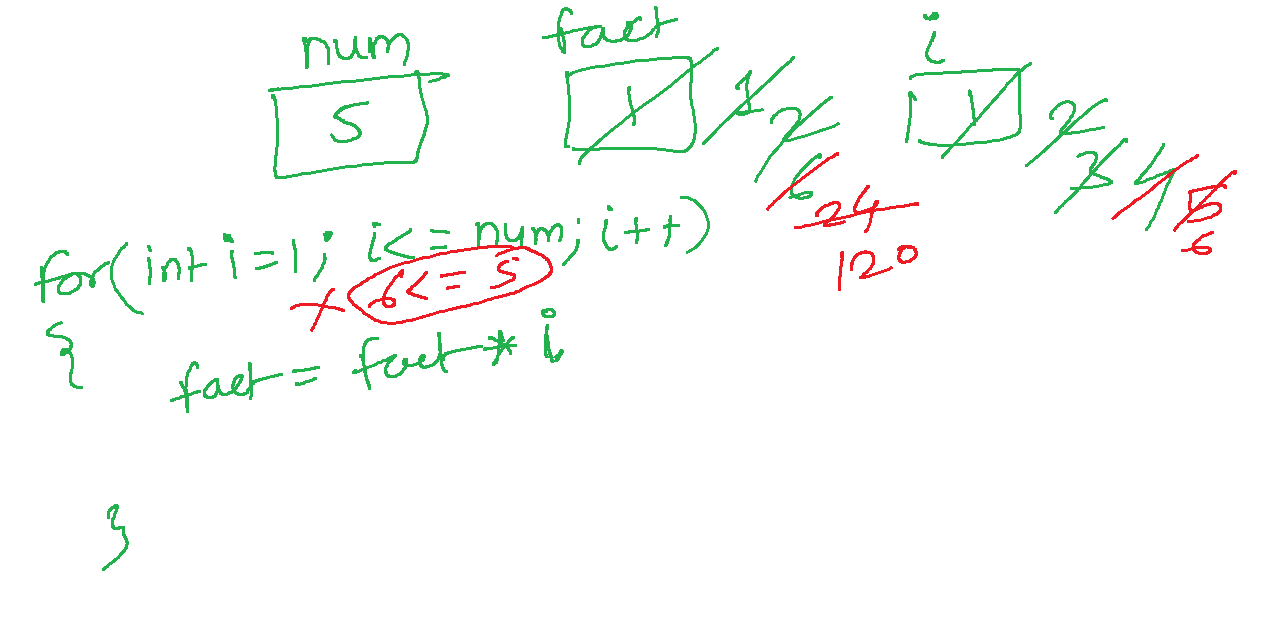 num fact i
5 1 1 2 6 24 120 1 2 3 4 5 6
for(int i=1; i<= num; i++)
x 6<= 5
{
fact = fact * i
}